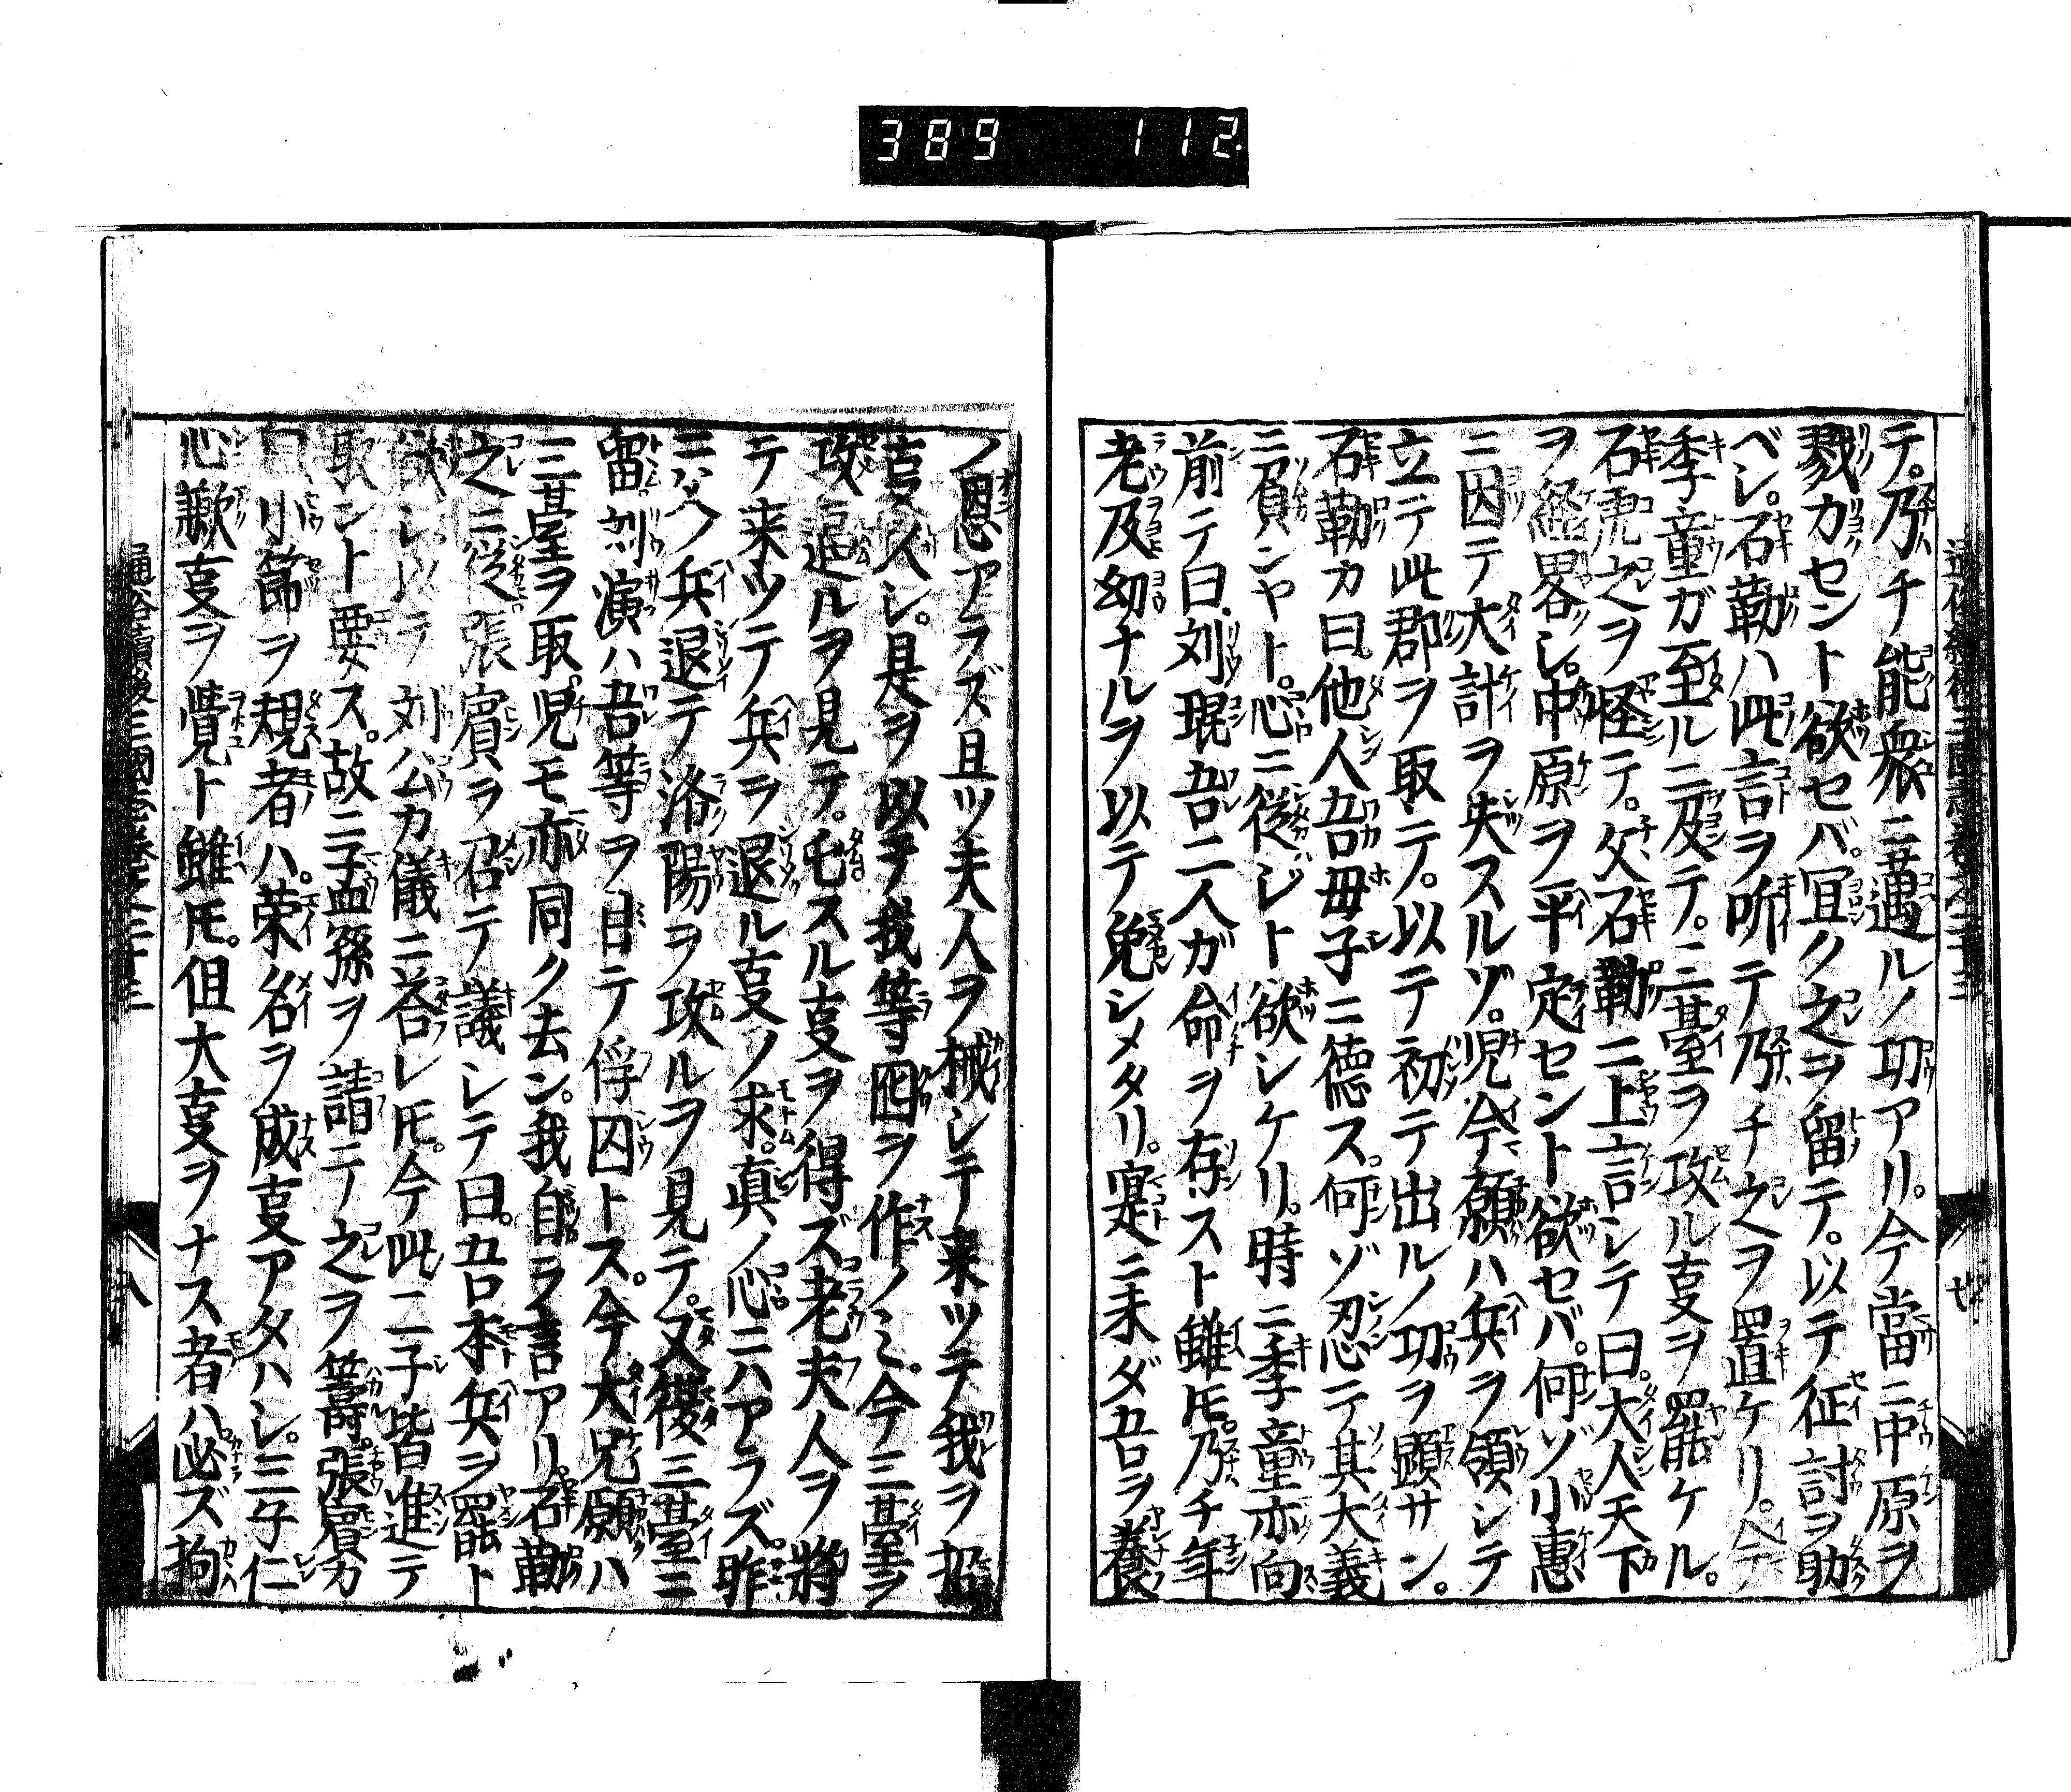 389 112
テ。乃チ能衆ニ遇ルノ功アリ。今當ニ中原ヲ
戮カセント欲セバ。宜ク之ヲ留テ。以テ征討ヲ助
ベシ。石勒ハ此言ヲ听テ乃チ之ヲ置ケリ。今
季童ガ至ルニ及テ。三臺ヲ攻ル𪜈ヲ罷ケル。
石虎之ヲ怪テ。父石勒ニ上言シテ曰。大人天下
ヲ経畧シ。中原ヲ平定セント欲セバ。何ゾ小惠
ニ因テ大計ヲ失スルゾ。児今願ハ兵ヲ領シテ
立テ此郡ヲ取テ。以テ初テ出ルノ功ヲ顕サン。
石勒カ曰他人吾母子ニ徳ス。何ゾ忍テ其大義
ニ負ンヤト。心ニ従ジト欲シケリ。時ニ季童亦向
前テ曰。刘琨吾二人ガ命ヲ存スト雖𪜈。乃チ年
老及幼ナルヲ以テ免シメタリ。寔ニ未ダ吾ヲ養
ノ恩アラズ且ツ夫人ヲ械シテ来ツテ我ヲ招
亊人シ。是ヲ以テ我等囮ヲ作ノミ。今三臺ヲ
攻逼ルヲ見テ。屯スル亊ヲ得ズ老夫人ヲ將
テ来ツテ兵ヲ退ル亊ノ求。真ノ心ニハアラズ。昨
ニハ兵退テ洛陽ヲ攻ルヲ見テ。又復三臺ニ
留。刘演ハ吾等ヲ目テ俘囚トス。今大兄願ハ
三臺ヲ取。児モ亦同ク去ン。我自ラ言アリ。石勒
之ニ従張賓ヲ召テ議シテ曰。吾本兵ヲ罷ト
欲シ以テ刘公カ儀ニ荅レ𪜈。今此二子皆進テ
取ント要ス。故ニ孟孫ヲ請テ之ヲ籌。張賓カ
曰小節ヲ規者ハ。荣名ヲ成亊アタハシ。三子仁
心歉亊ヲ覺ト雖𪜈。但大亊ヲナス者ハ。必ズ拘